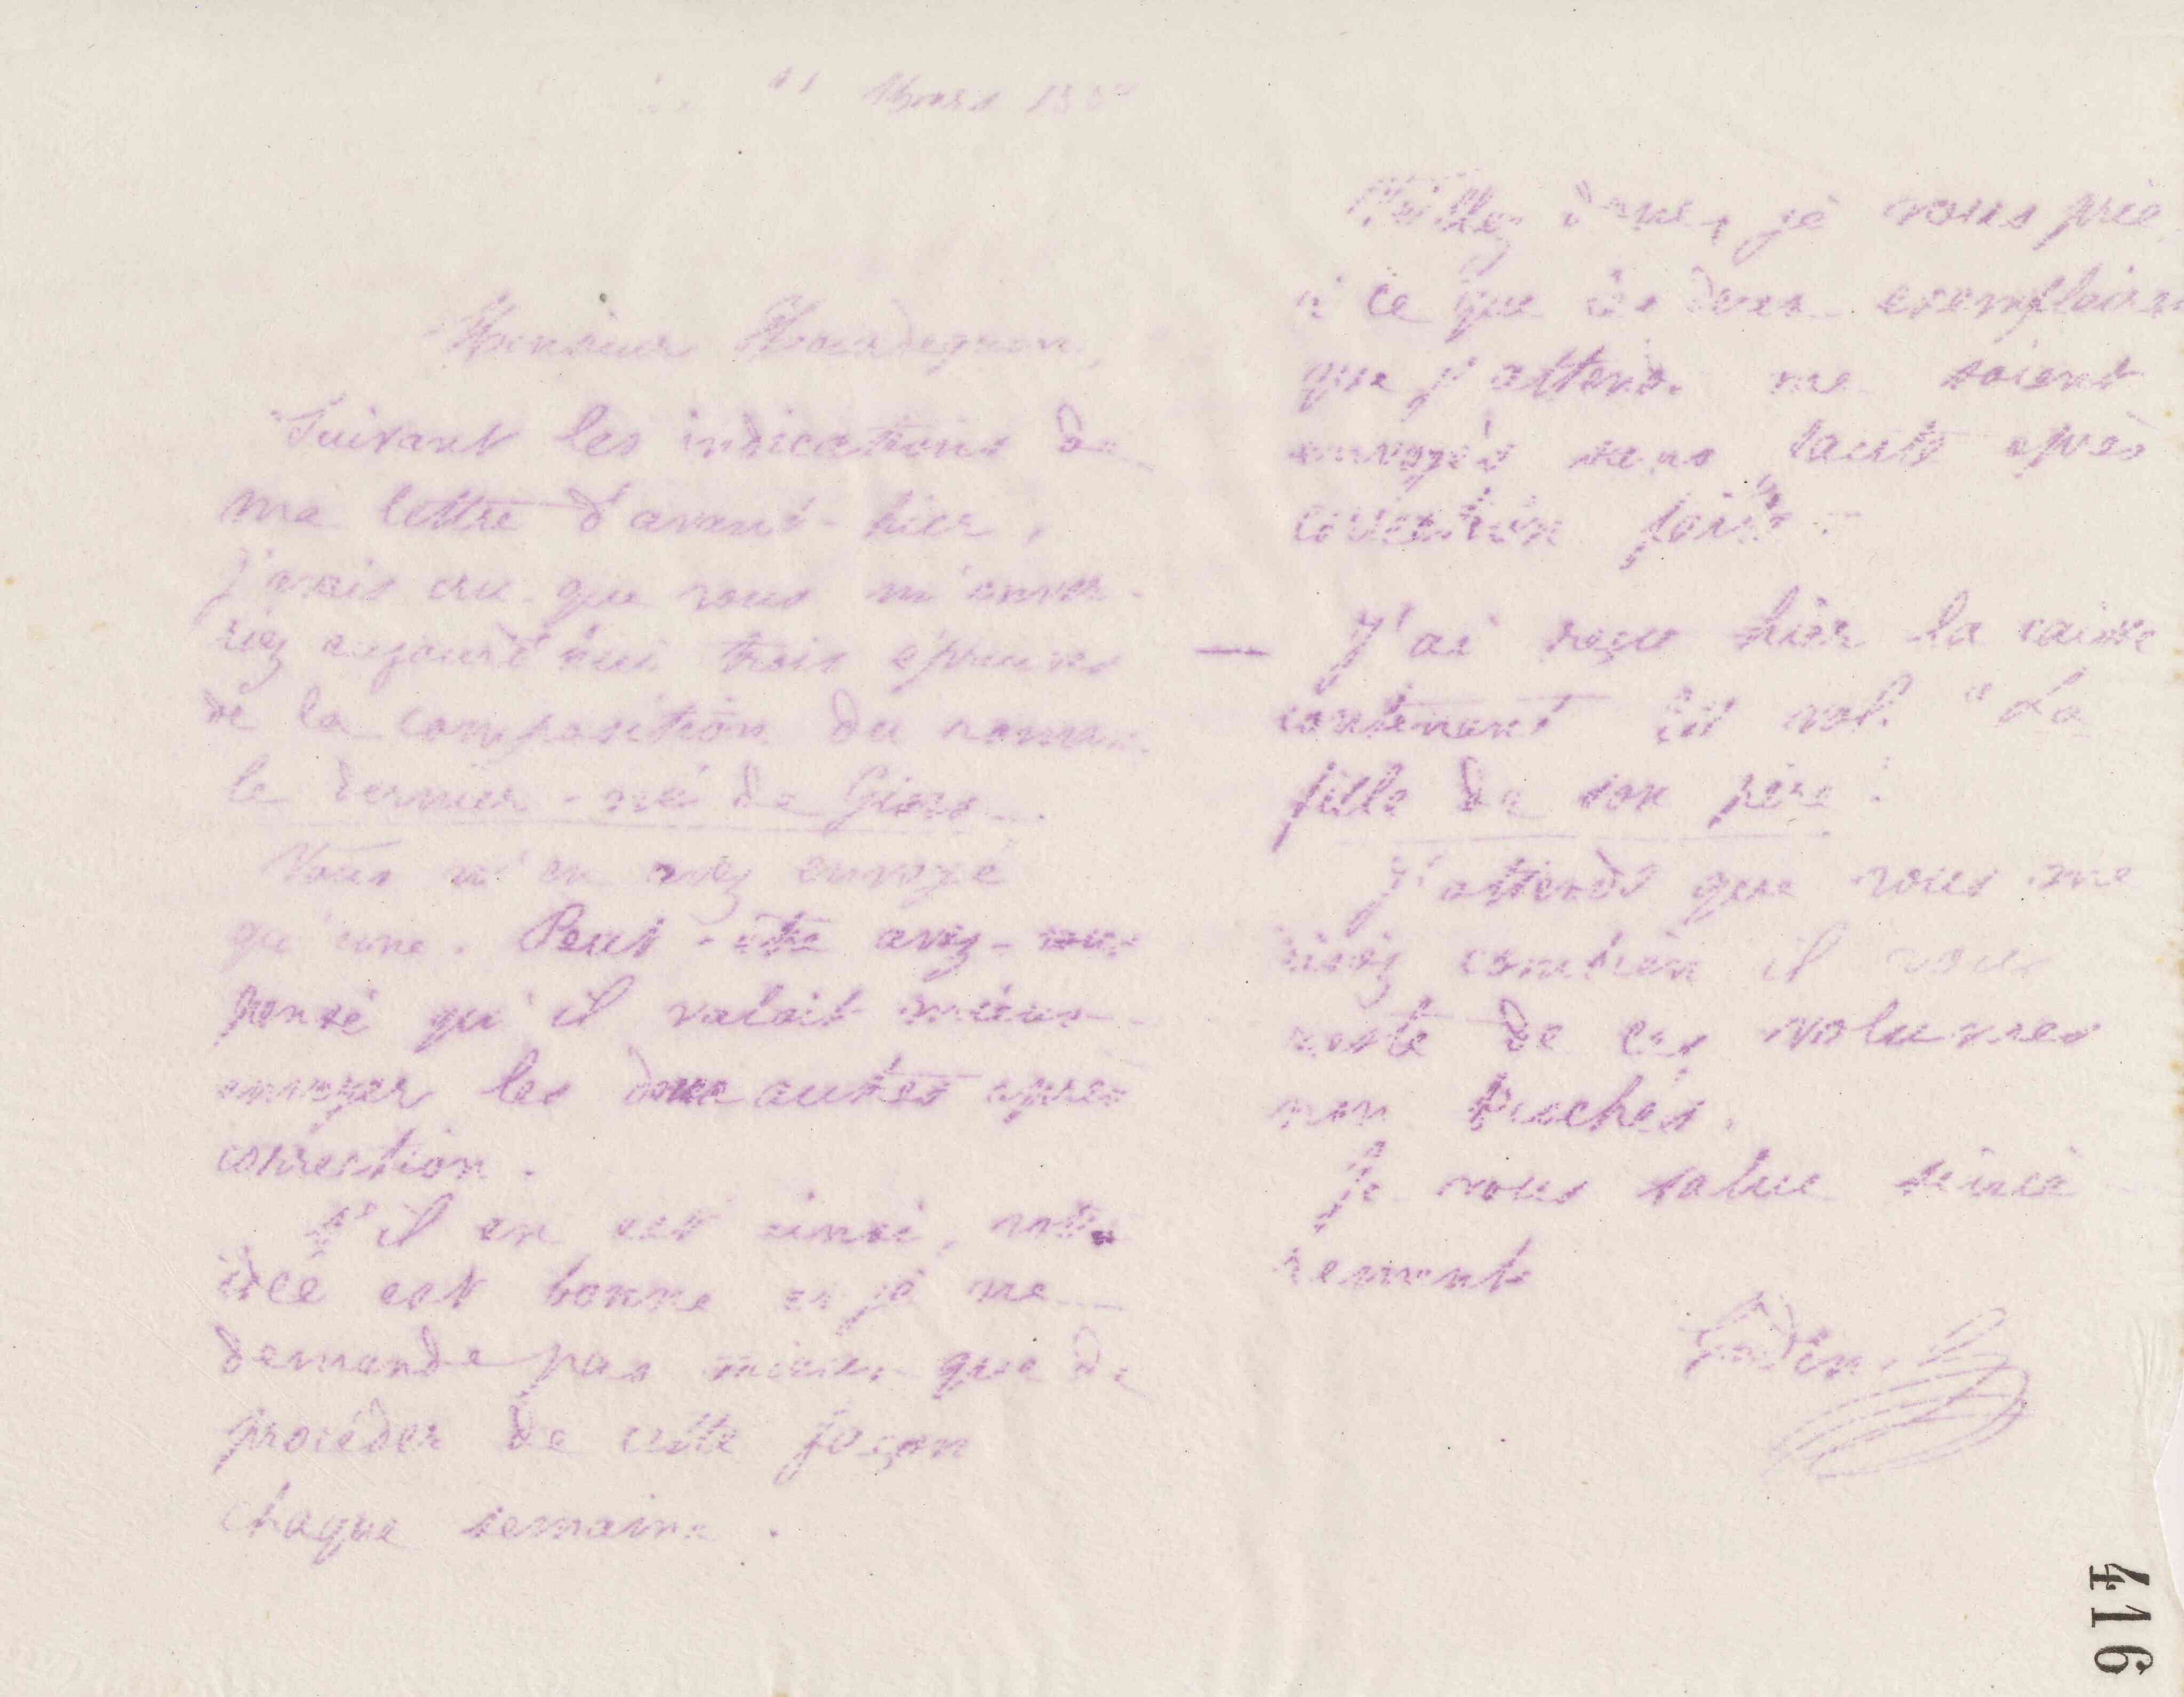 Mars
Monsieur
Suivant les indications de
ma lettre d'avant-hier,
j'avais cru que vous m'enver-
riez aujourd'hui trois épreuves
de la composition du roman
le dernier-né de
Vous m'en avez envoyé
qu'une. Peut-être avez-vous
pensé qu'il valait mieux
envoyer les deux autres après
correction.
S'il en est ainsi, votre
idée est bonne et je ne
demande pas mieux que de
procéder de cette façon
chaque semaine.
Veillez donc, je vous prie
à ce que les deux exemplaires
que j'attends me soient
envoyés sans faute après
correction faite.
— J'ai reçu hier la caisse
contenant vol. "La
fille de son père".
J'attends que vous me
disiez combien il vous
reste de ces volumes
non brochés.
Je vous salue sincè
rement
Godin
416